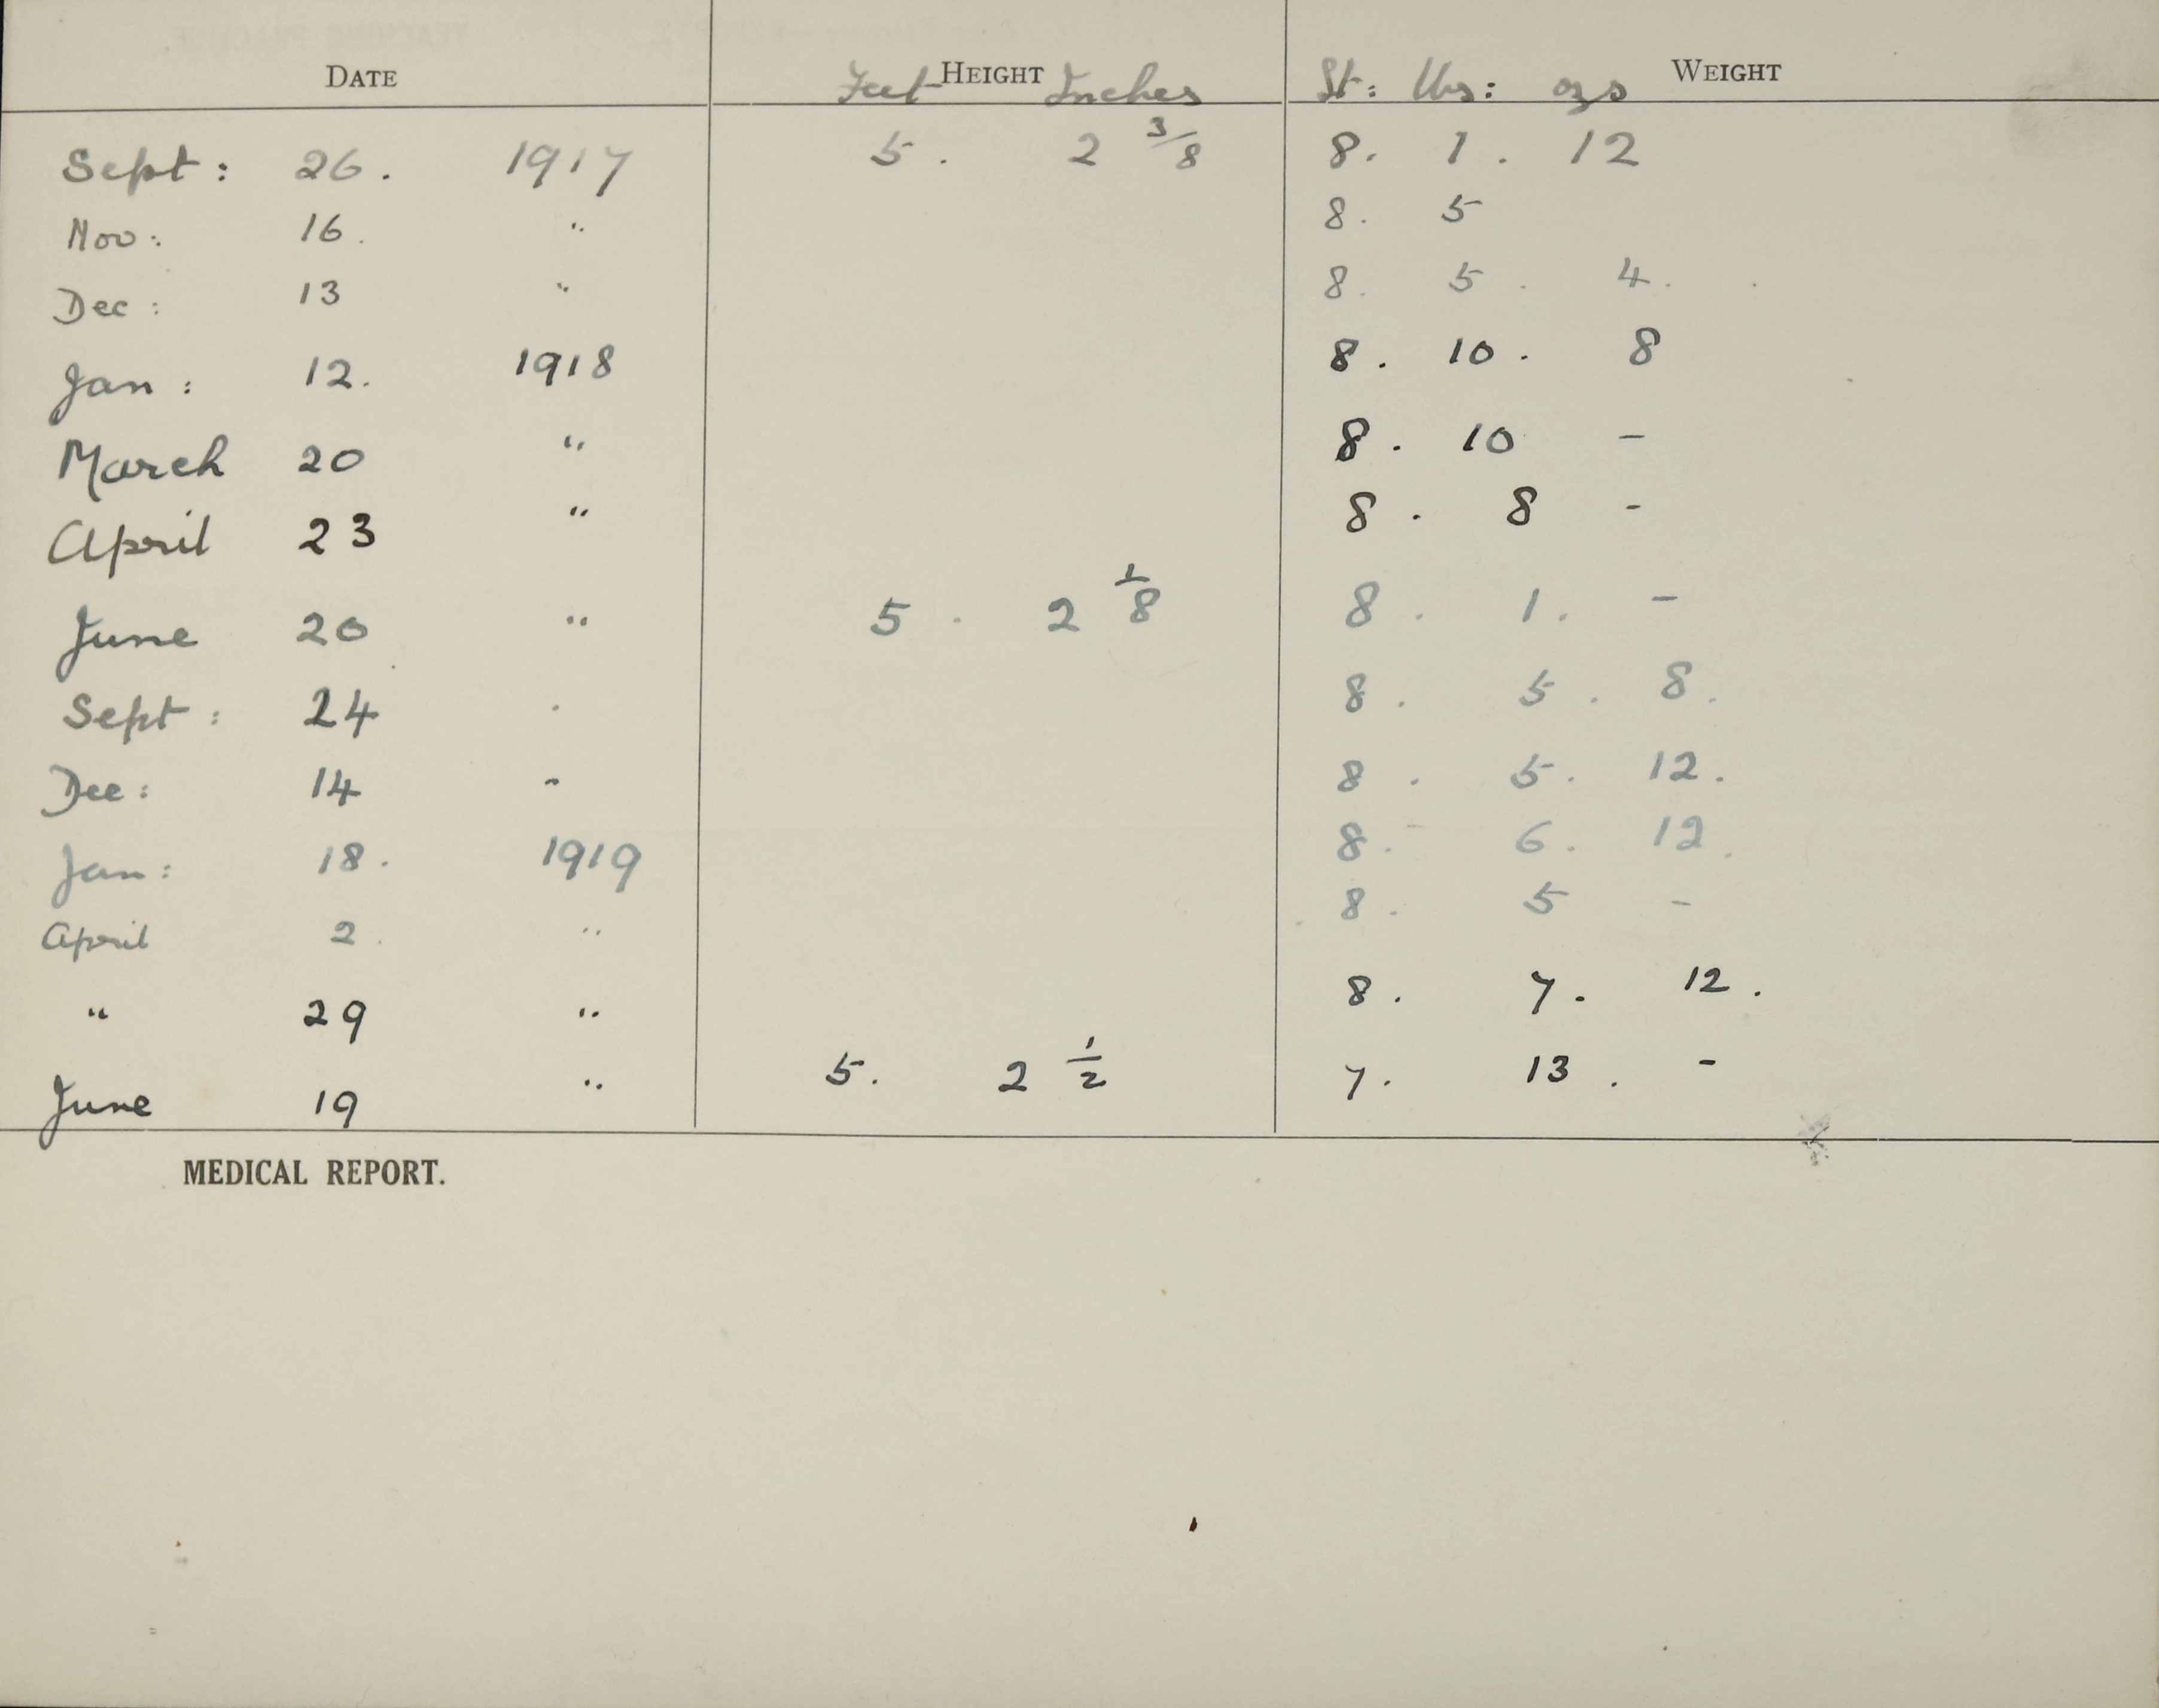 DATE HEIGHT WEIGHT
Feet Inches St: lbs: ozs
Sept: 26. 1917 5. 2 3/8 8. 1. 12
Nov: 16. " 8. 5
Dec: 13 " 8. 5. 4.
Jan: 12. 1918 8. 10. 8
March 20 " 8. 10 -
April 23 " 8. 8 -
June 20 " 5. 2 1/8 8. 1. -
Sept: 24 . 8. 5. 8.
Dec: 14 - 8. 5. 12.
Jan: 18. 1919 8. 6. 12.
April 2. " 8. 5 -
" 29 " 8. 7. 12.
June 19 " 5. 2 1/2 7. 13. -
MEDICAL REPORT.